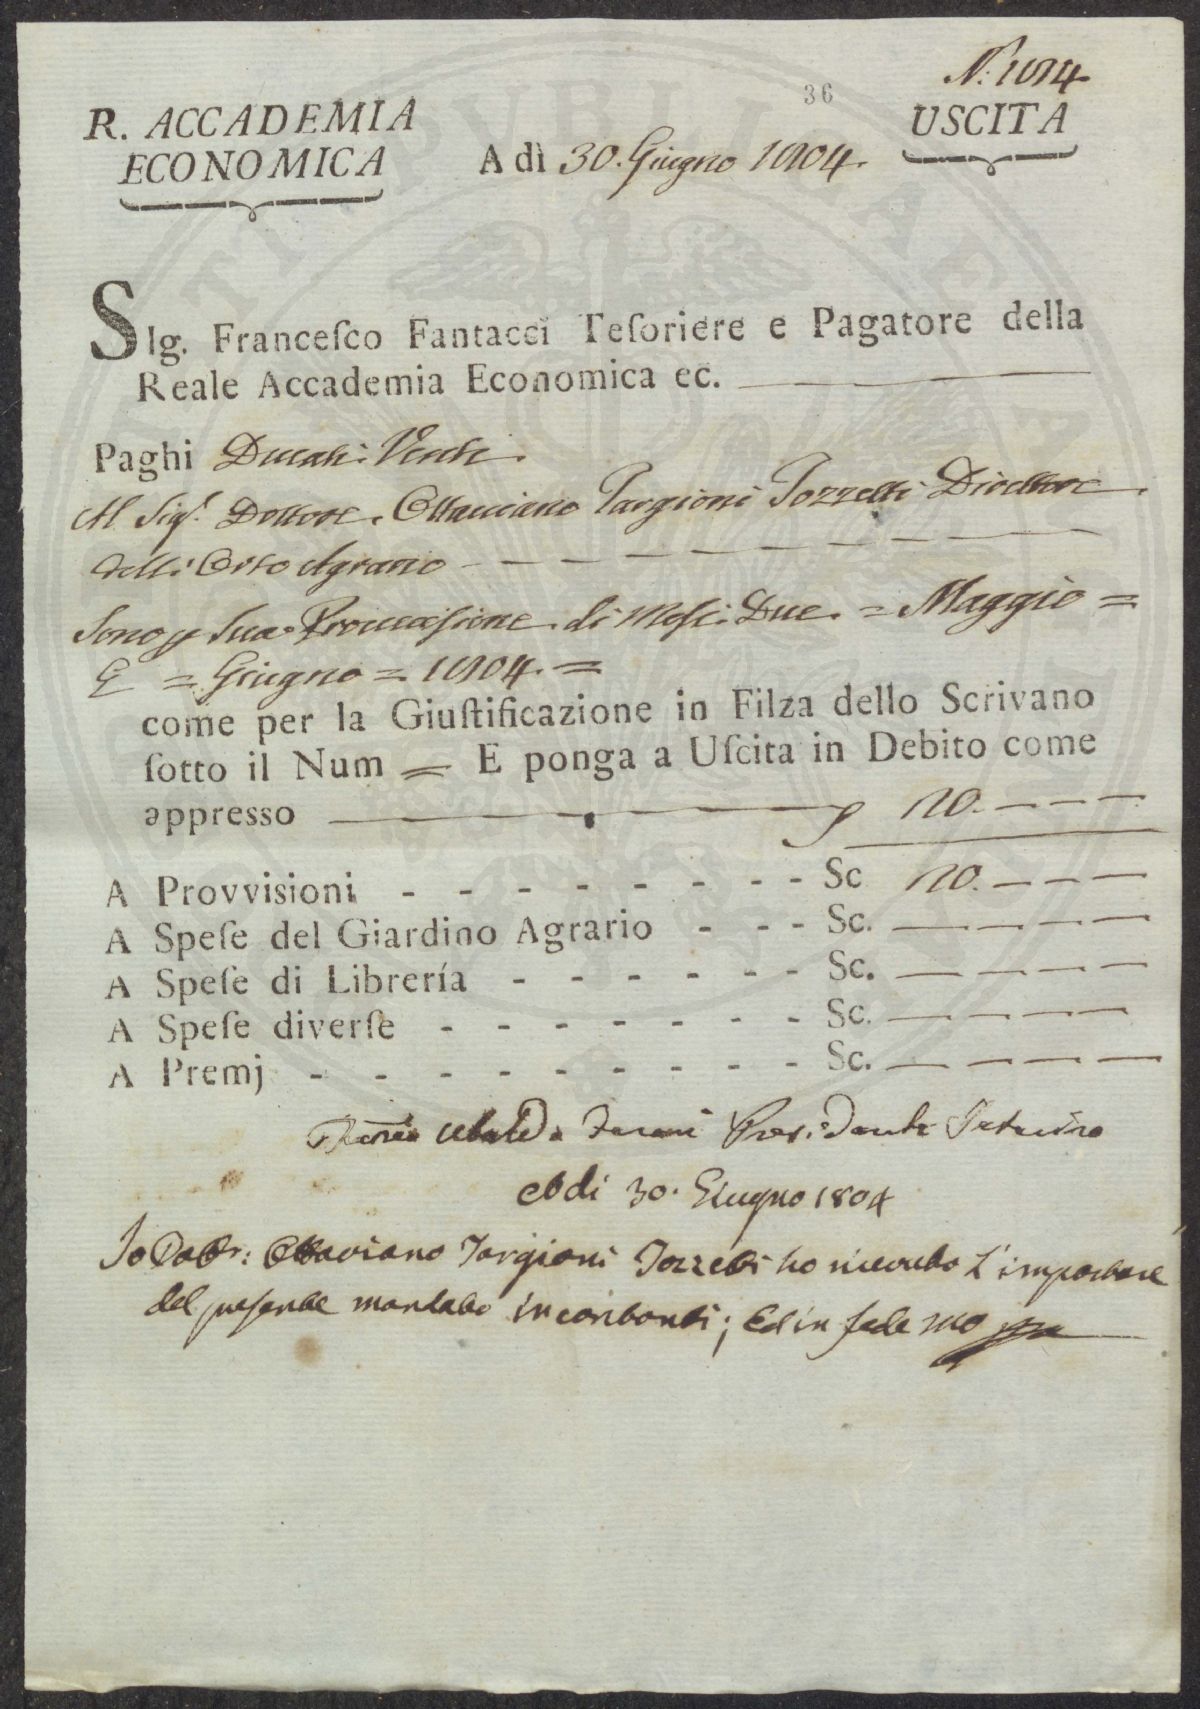 N.° 1814
36
R. ACCADEMIA
ECONOMICA
USCITA
A dì 30. Giugno 1804.
SIg. Franceſco Fantacci Teſoriere e Pagatore della
Reale Accademia Economica ec.
Paghi Ducati Venti
Al Sig.r Dottore Ottaviano Targioni Tozzetti Direttore
dell'Orto Agrario
Sono p Sua Provvisione di Mesi Due = Maggio =
E = Giugno = 1804. =
come per la Giuſtificazione in Filza dello Scrivano
ſotto il Num = E ponga a Uſcita in Debito come
appresso 20. — — —
A Provvisioni - - - - - - - - Sc 20. — — —
A Speſe del Giardino Agrario - - - Sc. — — — —
A Speſe di Librería - - - - - - Sc. — — — —
A Speſe diverſe - - - - - - - Sc. — — — —
A Premj - - - - - - - - - Sc. — — — —
Ubaldo
Adi 30. Giugno 1804
Io Dottr: Ottaviano Targioni Tozzetti ho ricevuto L'importare
del presente mandato in contanti; Ed in fede mo ppa